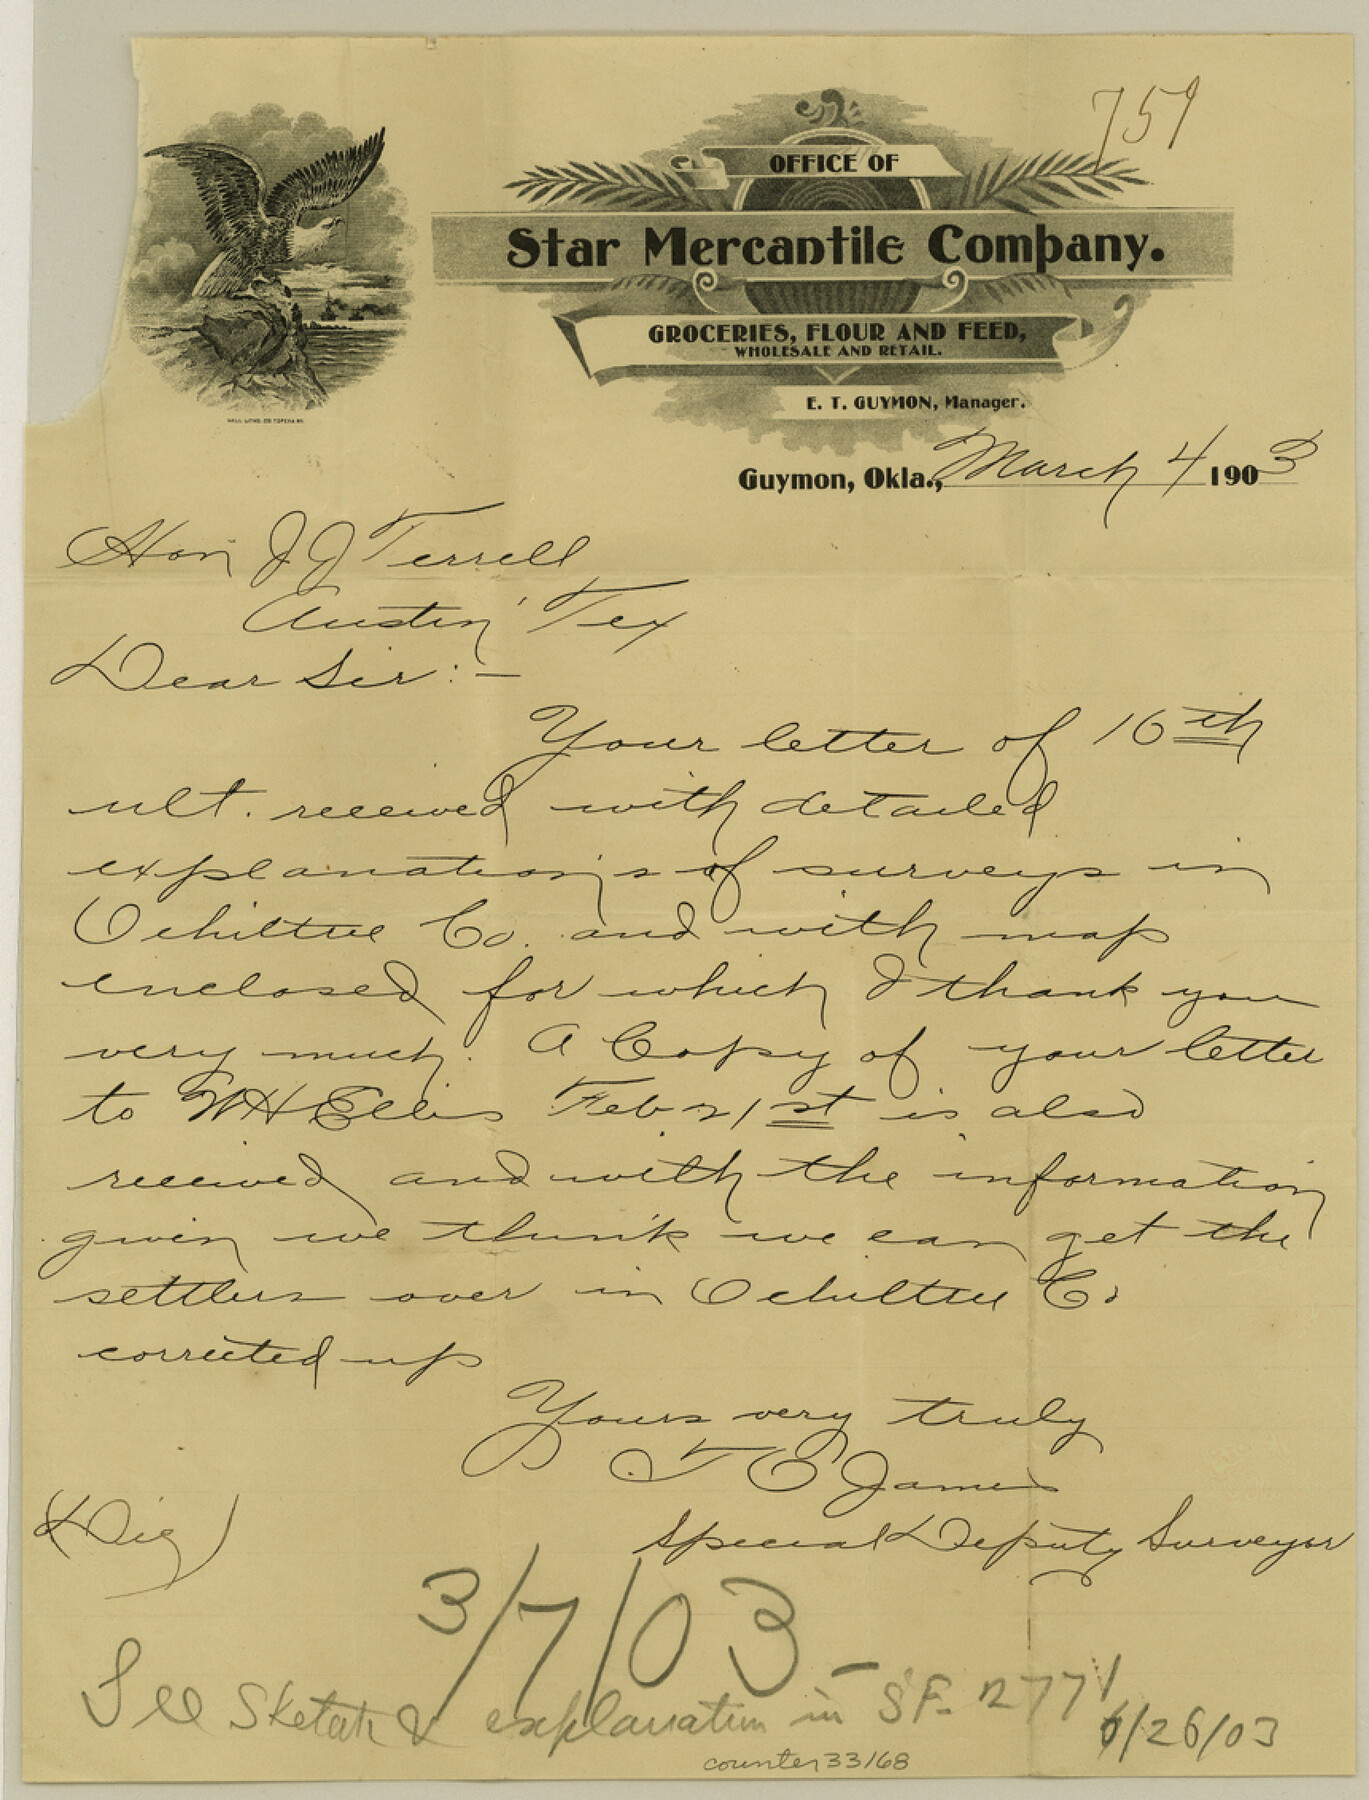 759
OFFICE OF
Star Mercantile Company.
GROCERIES, FLOUR AND FEED,
WHOLESALE AND RETAIL.
E. T. GUYMON, Manager.
HALL LITHO. CO. TOPEKA KS.
Guymon, Okla., March 4 1903
Hon J J Terrell
Austin Tex
Dear Sir :-
Your letter of 16th
ult. received with detailed
explanations of surveys in
Ochiltree Co. and with map
enclosed for which I thank you
very much. A Copy of your letter
to W H Ellis Feb 21st is also
received and with the information
given we think we can get the
settlers over in Ochiltree Co
corrected up
Yours very truly
T E James
(Dig)
Special Deputy Surveyor
3/7/03
See Sketch & explanation in SF. 2771
6/26/03
counter 33168